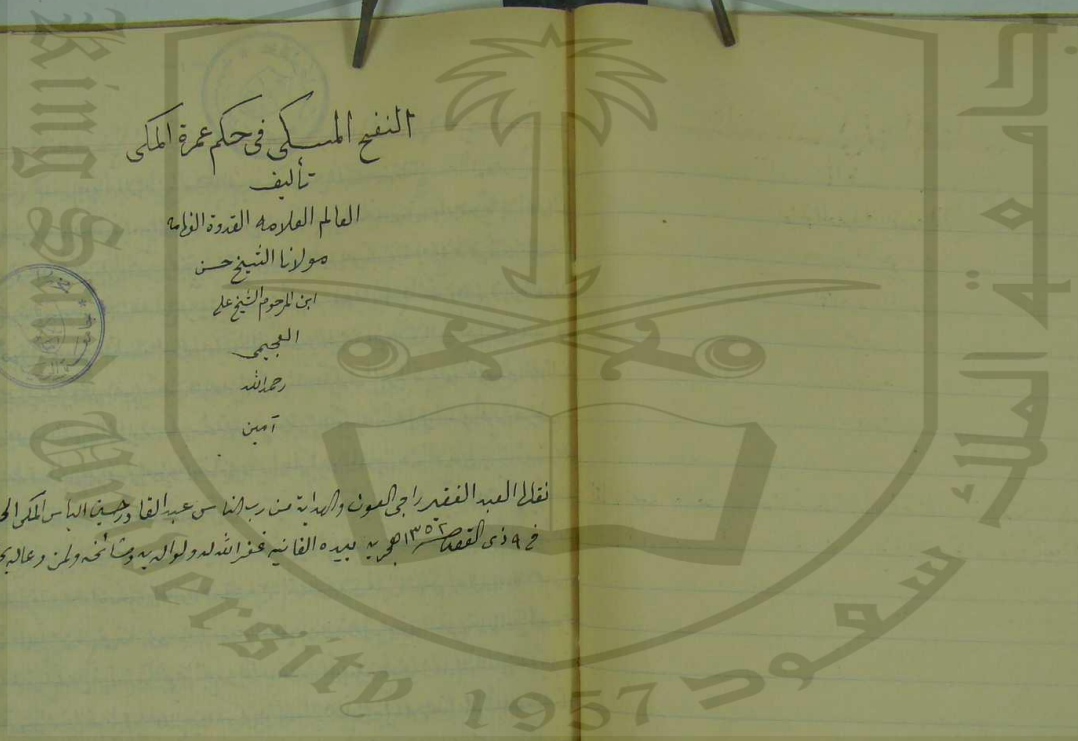 النفح المسكى فى حكم عمرة المكى
تأليف
العالم العلامه القدوة الفهامه
مولانا الشيخ حسن
ابن المرحوم الشيخ على
العجيمى
رحمه الله
آمين
نقلها العبد الفقير راجى العون والهداية من رب الناس عبد القادر حسين الياس المكى
فى ٩ ذى القعدة سنة ١٣٥٢ هجريه بيده الفانيه غفر الله له ولوالديه ومشائخه ولمن دعا له
جامعة الملك سعود
King Saud University 1957